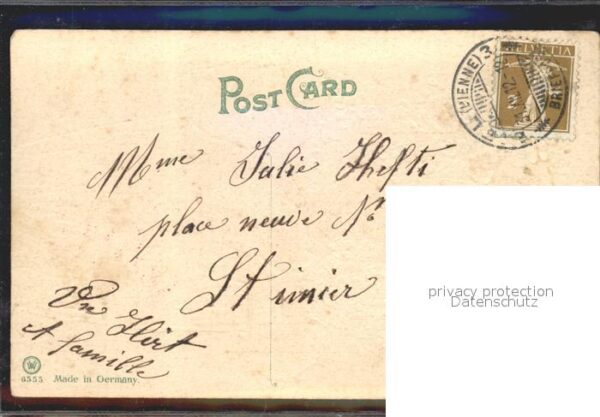 POST CARD
HELVETIA
(BIENNE)
BRIEF
2
Mme Julie Hefti
place neuve No
St imier
Hirt
& famille
6555 Made in Germany.
privacy protection
Datenschutz